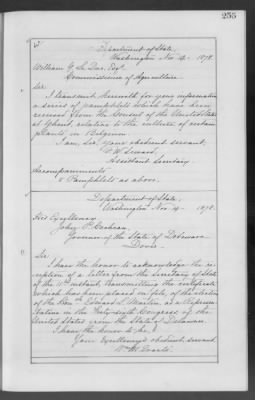 255
Department of State,
Washington Nov 14 - 1878.
William G. Le Duc, Esqr.
Commissioner of Agriculture
Sir
I transmit herewith for your information
a series of pamphlets which have been
received from the Consul of the United States
at Ghent, relative to the culture of certain
plants, in Belgium.
I am, Sir, your obedient servant,
F. W. Seward,
Assistant Secretary.
Accompaniments
Pamphlets as above.
Department of State,
Washington Nov 14 - 1878.
His Excellency
John P. Cochran,
Governor of the State of Delaware
Dover
Sir
I have the honor to acknowledge the re-
ception of a letter from the Secretary of State
of the instant, transmitting the certificate
which has been placed on file, of the election
of the Hon. Edward L. Martin, as a Represen-
tative in the Forty-sixth Congress of the
United States from the State of Delaware.
I have the honor to be,
Your Excellency's obedient servant
Wm. M. Evarts.